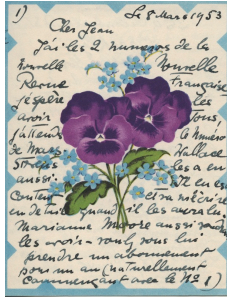 1)
Le 8 Mars 1953
Cher Jean
J'ai les 2 numeros de la
Nouvelle Nouvelle
Revue Française
j'espère les
avoir tous,
j'attends le Numero
de Mars Wallace
Stevens les a en
aussi
content et va m'écrire
quand il les aura lu
Marianne Moore aussi
les avoir - voulez vous lui
prendre un abonnement
pour un an (naturellement
commençant avec le No 1)